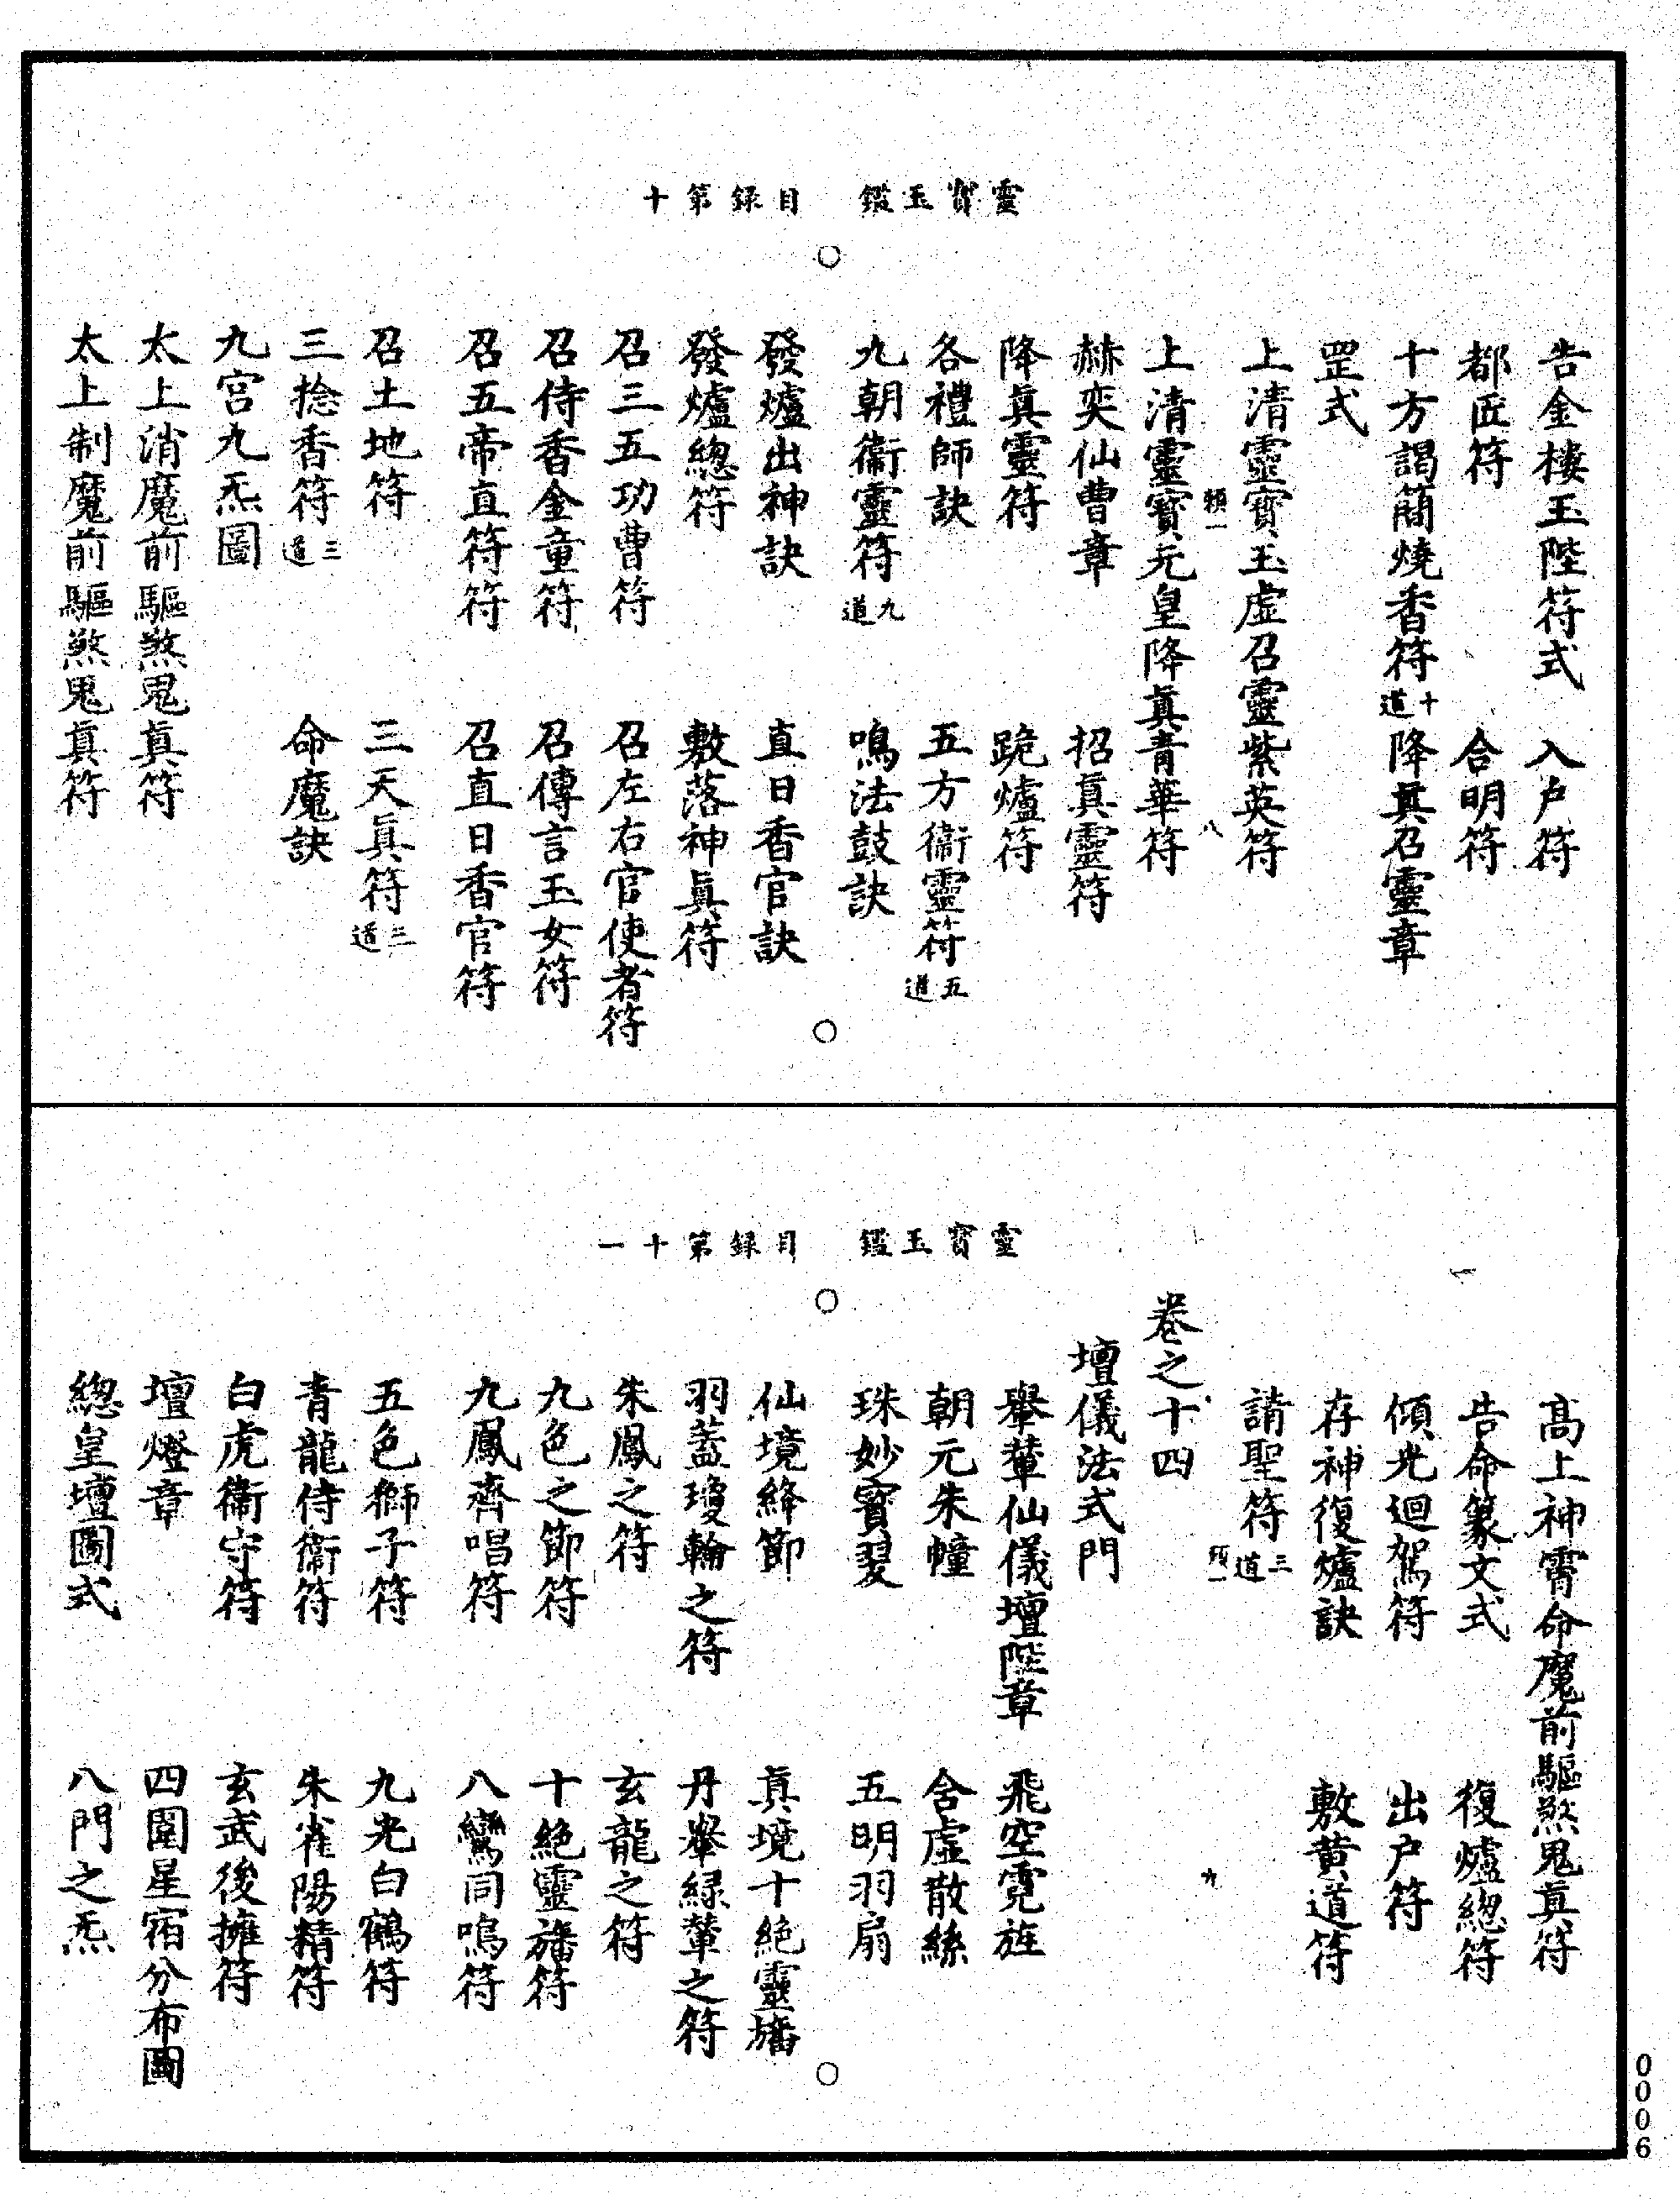 靈寶玉鑑　目録第十
告金樓玉陛符式　入户符
都匠符　合明符
十方謁簡燒香符十道　降真召靈章
罡式
上清靈寶玉虚召靈紫英符
頼一　八
上清靈寶元皇降真青華符
赫奕仙曹章　招真靈符
降真靈符　跪爐符
各禮師訣　五方衞靈符五道
九朝衞靈符九道　鳴法鼓訣
發爐出神訣　直日香官訣
發爐總符　敷落神真符
召三五功曹符　召左右官使者符
召侍香金童符　召傳言玉女符
召五帝直符符　召直日香官符
召土地符　三天真符三道
三捻香符三道　命魔訣
九宫九炁圖
太上消魔前驅煞鬼真符
太上制魔前驅煞鬼真符
靈寶玉鑑　目録第十一
高上神霄命魔前驅煞鬼真符
告命篆文式　復爐總符
傾光迴駕符　出户符
存神復爐訣　敷黄道符
請聖符三道
九
卷之十四
壇儀法式門
舉輦仙儀壇陛章　飛空霓旌
朝元朱幢　含虚散絲
珠妙寳翣　五明羽扇
仙境絳節　真境十絶靈旛
羽蓋瓊輪之符　丹轝緑輦之符
朱鳳之符　玄龍之符
九色之節符　十絶靈旛符
九鳳齊唱符　八鸞同鳴符
五色獅子符　九光白鶴符
青龍侍衞符　朱雀陽精符
白虎衞守符　玄武後擁符
壇燈章　四圍星宿分布圖
總皇壇圖式　八門之炁
0006